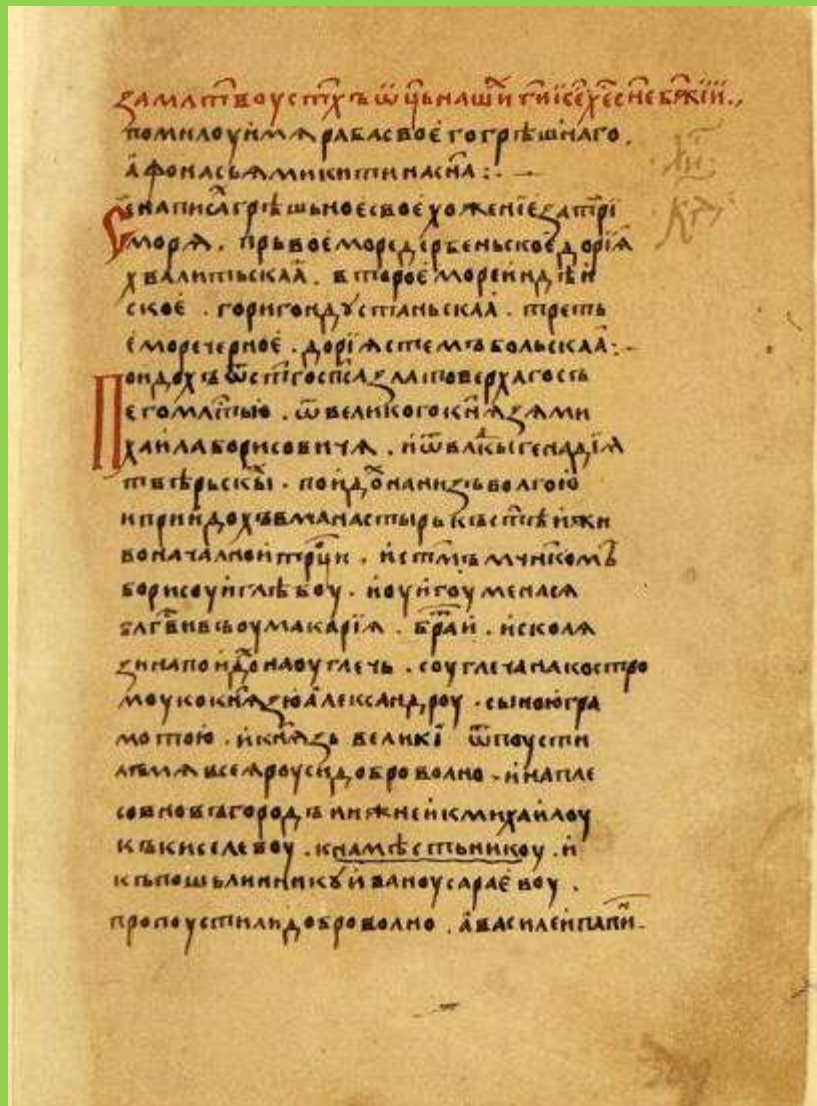 за млтвоу стхъ ѿць нашихъ ги ісе хе сне бжіи.,
помилоуи мѧ раба своего грѣшнаго.
афонасьѧ микитина сна:. —
Се написа грѣшьное свое хоженіе за три
морѧ. прьвое море дербеньское доріа
хвалитьскаа. второе море индѣи
ское. гори гондустаньскаа. треть
е море черное. доріѧ стемъбольскаа:-
Поидохъ ѿ стго спса златоверхаго сь
его млтью. ѿ великого кнѧзѧ ми
хаила борисовича. и ѿ влкы генадіѧ
твѣрьскы. поидо на низъ волгою
и приидохъ в манастырь къ стѣи жи
воначалнои трци. и стмъ мчнкомъ
борисоу и глѣбоу. и оу игоумена сѧ
блгвивъ оу макаріѧ. браи. и с колѧ
зина поидо на оуглечь. с оуглеча на костро
моу ко кнѧзю александроу. с ыною гра
мотою. и кнѧзь великі ѿпоусти
лъ мѧ всеѧ роуси доброволно. и на пле
со в новъгородъ нижнеи к михаилоу
къ киселевоу. к намѣстьникоу. и
къ пошьлиннику иваноу сараевоу.
пропоустили доброволно. а василеи папи-